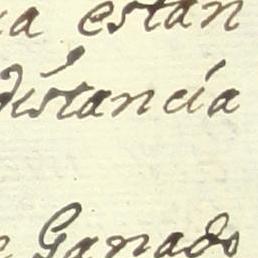 estan
distancia
Ganado